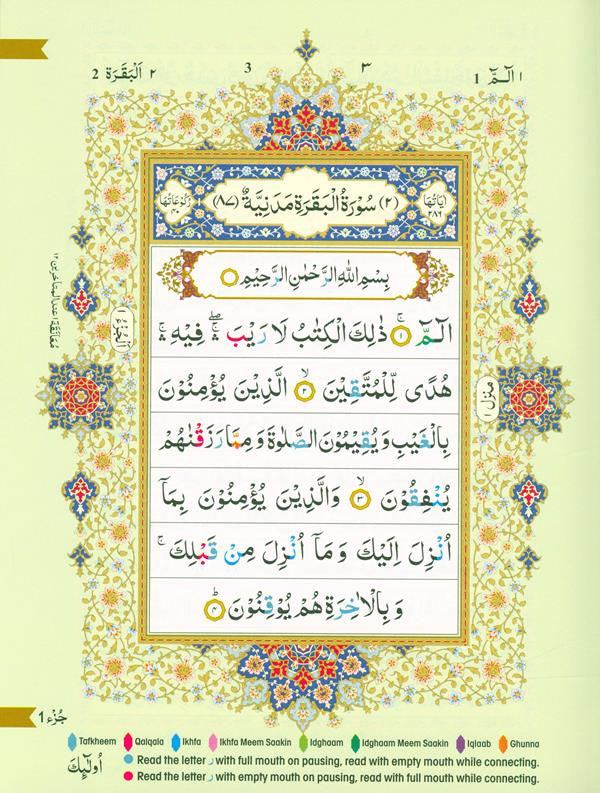 ا الٓمّٓ 1
3 ٣
٢ اَلْبَقَرَة 2
اٰيَاتُهَا ٢٨٦
(٢) سُوْرَةُ الْبَقَرَةِ مَدَنِيَّةٌ (٨٧)
رُكُوْعَاتُهَا ٤٠
بِسْمِ اللّٰهِ الرَّحْمٰنِ الرَّحِيْمِ
الٓمّٓ ۚ﴿١﴾ ذٰلِكَ الْكِتٰبُ لَا رَيْبَ ۛۖ فِيْهِ ۛۚ
هُدًى لِّلْمُتَّقِيْنَ ۙ﴿٢﴾ الَّذِيْنَ يُؤْمِنُوْنَ
بِالْغَيْبِ وَ يُقِيْمُوْنَ الصَّلٰوةَ وَ مِمَّا رَزَقْنٰهُمْ
يُنْفِقُوْنَ ۙ﴿٣﴾ وَالَّذِيْنَ يُؤْمِنُوْنَ بِمَاۤ
اُنْزِلَ اِلَيْكَ وَ مَاۤ اُنْزِلَ مِنْ قَبْلِكَ ۚ
وَ بِالْاٰخِرَةِ هُمْ يُوْقِنُوْنَ ؕ﴿٤﴾
منزل ١
اَلْجُزْءُ ١
مُعَانَقَة ١ عند المتأخرين ١٢
جُزْء 1
Tafkheem Qalqala Ikhfa Ikhfa Meem Saakin Idghaam Idghaam Meem Saakin Iqlaab Ghunna
Read the letter ر with full mouth on pausing, read with empty mouth while connecting.
Read the letter ر with empty mouth on pausing, read with full mouth while connecting.
اُولٰٓئِكَ